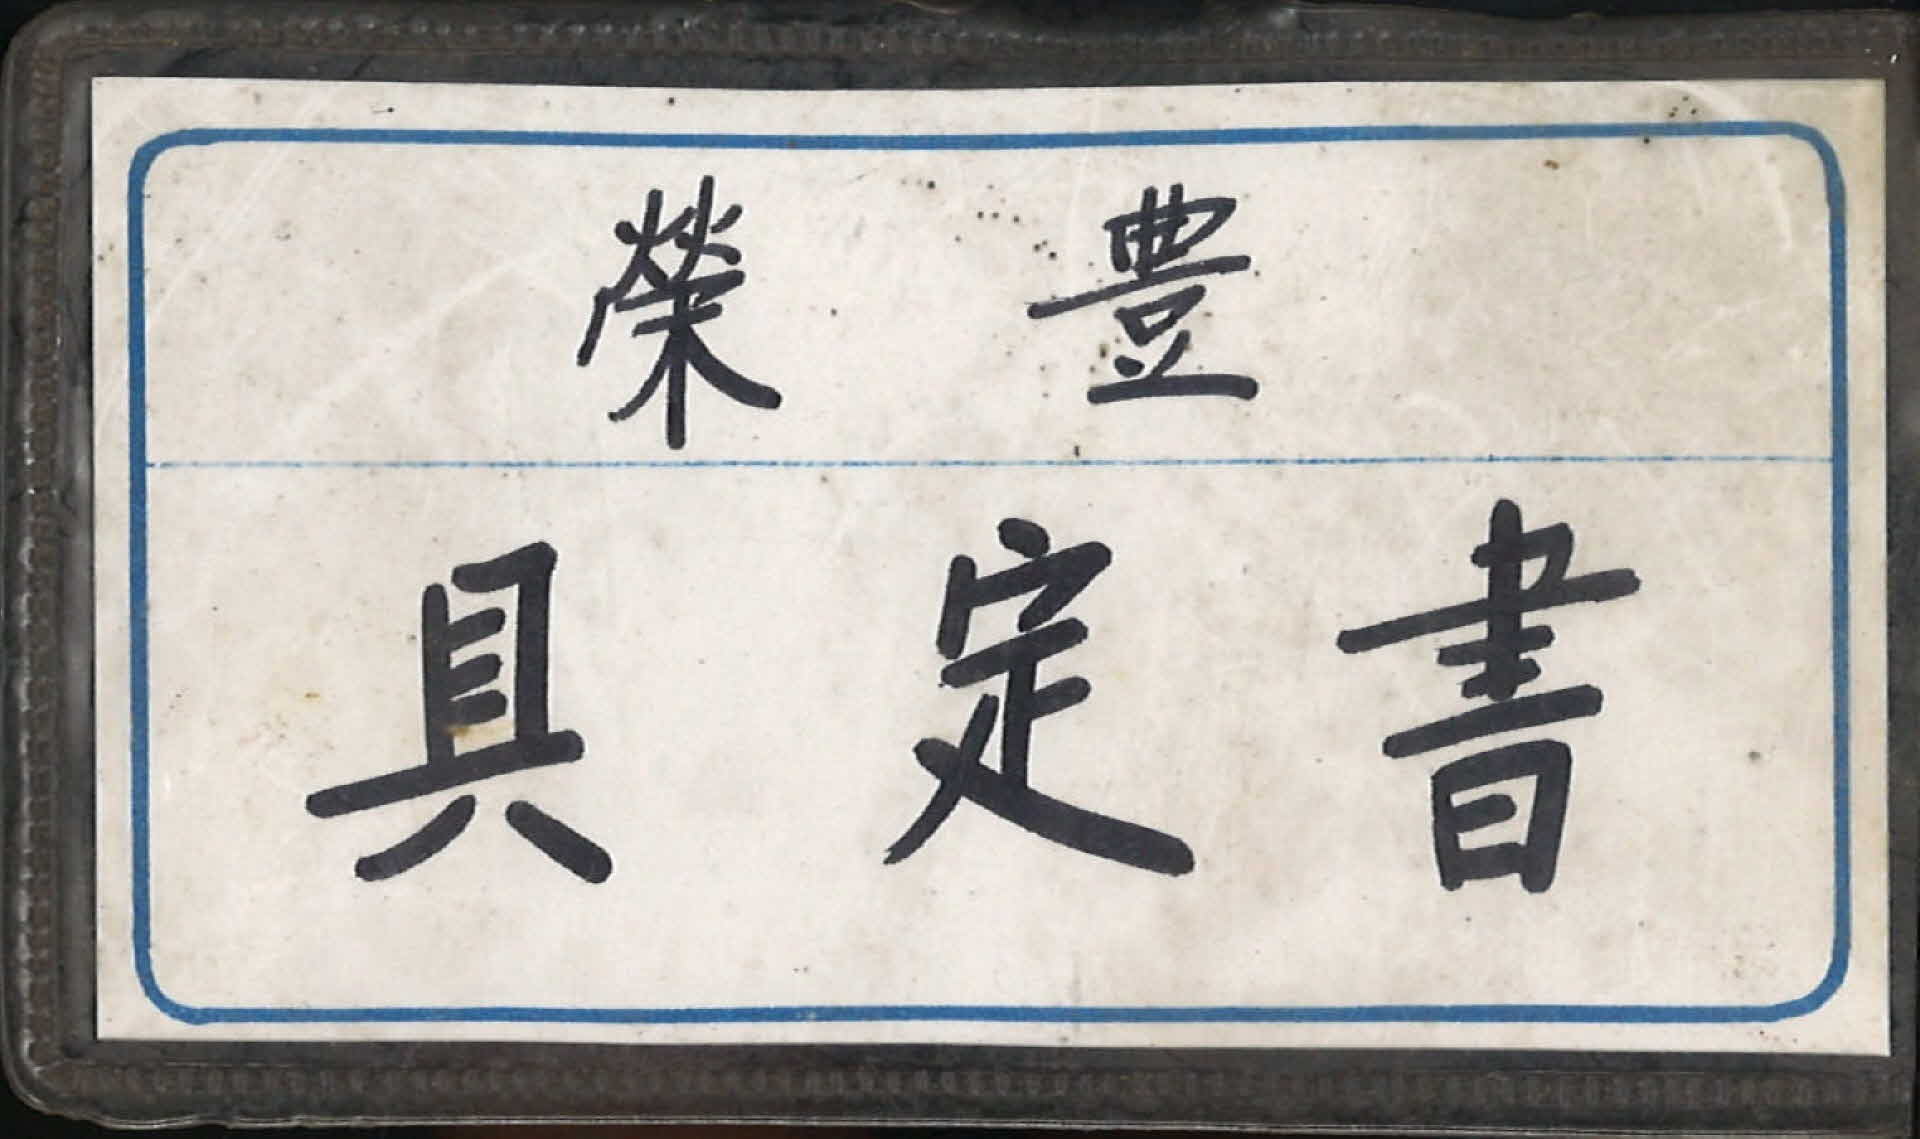 榮豊
具定書